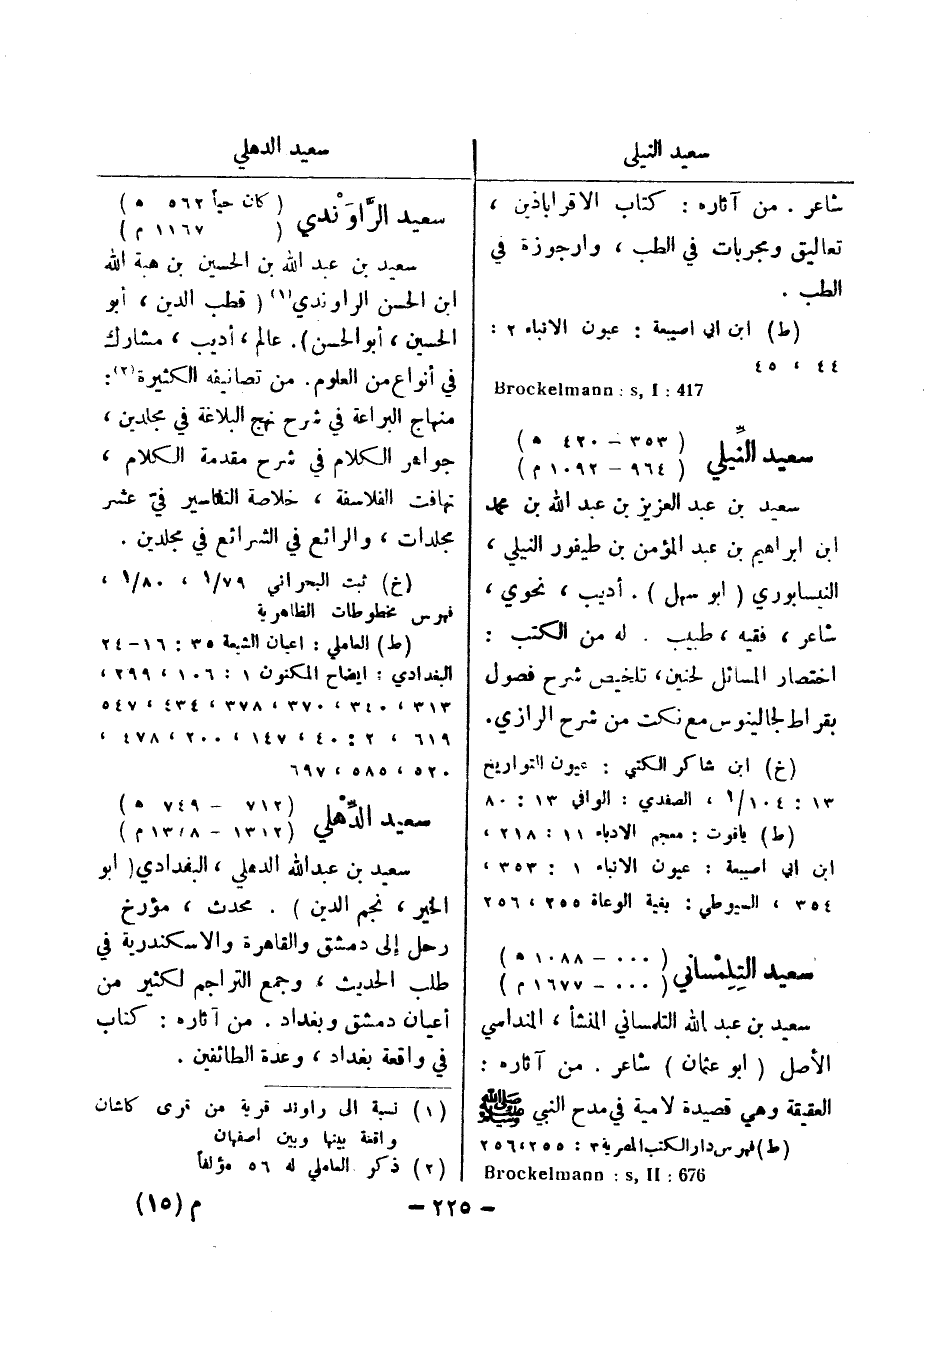 سعيد النيلي
شاعر . من آثاره : كتاب الاقراباذين ،
تعاليق ومجربات في الطب ، وارجوزة في
الطب .
(ط) ابن ابي اصيبعة : عيون الانباء ٢ :
٤٤ ، ٤٥
Brockelmann : s, I : 417
سعيد النِّيلي
( ٣٥٣ – ٤٢٠ ه )
( ٩٦٤ – ١٠٩٢ م )
سعيد بن عبد العزيز بن عبد الله بن محمد
ابن ابراهيم بن عبد المؤمن بن طيفور النيلي ،
النيسابوري ( ابو سهل ) . أديب ، نحوي ،
شاعر ، فقيه ، طبيب . له من الكتب :
اختصار المسائل لحنين، تلخيص شرح فصول
بقراط لجالينوس مع نكت من شرح الرازي.
(خ) ابن شاكر الكتبي : عيون التواريخ
١٣ : ١٠٤/٢ ، الصفدي : الوافي ١٣ : ٨٠
(ط) ياقوت : معجم الادباء ١١ : ٢١٨ ،
ابن ابي اصيبعة : عيون الانباء ١ : ٣٥٣ ،
٣٥٤ ، السيوطي : بغية الوعاة ٢٥٥ ، ٢٥٦
سعيد التِلِمْساني
( ٠٠٠ – ١٠٨٨ ه )
( ٠٠٠ – ١٦٧٧ م )
سعيد بن عبد الله التلمساني المنشأ ، المنداسي
الأصل ( ابو عثمان ) شاعر . من آثاره :
العقيقة وهي قصيدة لامية في مدح النبي ﷺ
(ط) فهرس دار الكتب المصرية ٣ : ٢٥٥ ، ٢٥٦
Brockelmann : s, II : 676
سعيد الدهلي
سعيد الرَّاوَنْدي
( كان حياً ٥٦٢ ه )
( ١١٦٧ م )
سعيد بن عبد الله بن الحسين بن هبة الله
ابن الحسن الراوندي(١) ( قطب الدين ، أبو
الحسين ، أبو الحسن). عالم ، أديب ، مشارك
في أنواع من العلوم. من تصانيفه الكثيرة(٢):
منهاج البراعة في شرح نهج البلاغة في مجلدين ،
جواهر الكلام في شرح مقدمة الكلام ،
تهافت الفلاسفة ، خلاصة التفاسير في عشر
مجلدات ، والرائع في الشرائع في مجلدين .
(خ) ثبت البحراني ١/٧٩ ، ١/٨٠ ،
فهرس مخطوطات الظاهرية
(ط) العاملي : اعيان الشيعة ٣٥ : ١٦–٢٤
البغدادي : ايضاح المكنون ١ : ١٠٦ ، ٢٩٩ ،
٣١٣ ، ٣٤٠ ، ٣٧٠ ، ٣٧٨ ، ٤٣٤ ، ٥٤٧
٦١٩ ، ٢ : ٤٠ ، ١٤٧ ، ٢٠٠ ، ٤٧٨ ،
٥٢٠ ، ٥٨٥ ، ٦٩٧
سعيد الدِّهْلي
( ٧١٢ – ٧٤٩ ه )
( ١٣١٢ – ١٣٤٨ م )
سعيد بن عبدالله الدهلي ، البغدادي ( ابو
الخير ، نجم الدين ) . محدث ، مؤرخ
رحل إلى دمشق والقاهرة والاسكندرية في
طلب الحديث ، وجمع التراجم لكثير من
أعيان دمشق وبغداد . من آثاره : كتاب
في واقعة بغداد ، وعدة الطائفين .
(١) نسبة الى راوند قرية من قرى كاشان
واقعة بينها وبين اصفهان
(٢) ذكر العاملي له ٥٦ مؤلفاً
– ٢٢٥ –
م (١٥)